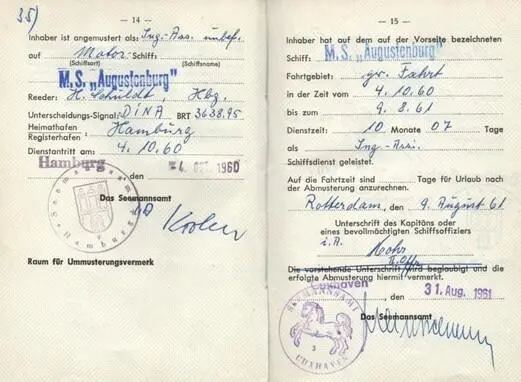 35)
— 14 —
Inhaber ist angemustert als: Ing.-Ass. unbef.
auf Motor Schiff:
(Schiffsart) (Schiffsname)
M.S. „Augustenburg"
Reeder: H. Schuldt, Hbg.
Unterscheidungs-Signal: DINA BRT 3638.95
Heimathafen
Registerhafen: Hamburg
Dienstantritt am: 4.10.60
Hamburg, den 4. Okt. 1960
Das Seemannsamt
Seemannsamt Hamburg
Raum für Ummusterungsvermerk
— 15 —
Inhaber hat auf dem auf der Vorseite bezeichneten
Schiff: M.S. „Augustenburg"
Fahrtgebiet: gr. Fahrt
in der Zeit vom 4.10.60
bis zum 9.8.61
Dienstzeit: 10 Monate 07 Tage
als Ing.-Assi.
Schiffsdienst geleistet.
Auf die Fahrtzeit sind Tage für Urlaub nach
der Abmusterung anzurechnen.
Rotterdam, den 9. August 61
Unterschrift des Kapitäns oder
eines bevollmächtigten Schiffsoffiziers
i.A.
II. Offz.
Die vorstehende Unterschrift wird beglaubigt und die
erfolgte Abmusterung hiermit vermerkt.
Cuxhaven, den 31. Aug. 1961
Das Seemannsamt
SEEMANNSAMT
3
CUXHAVEN